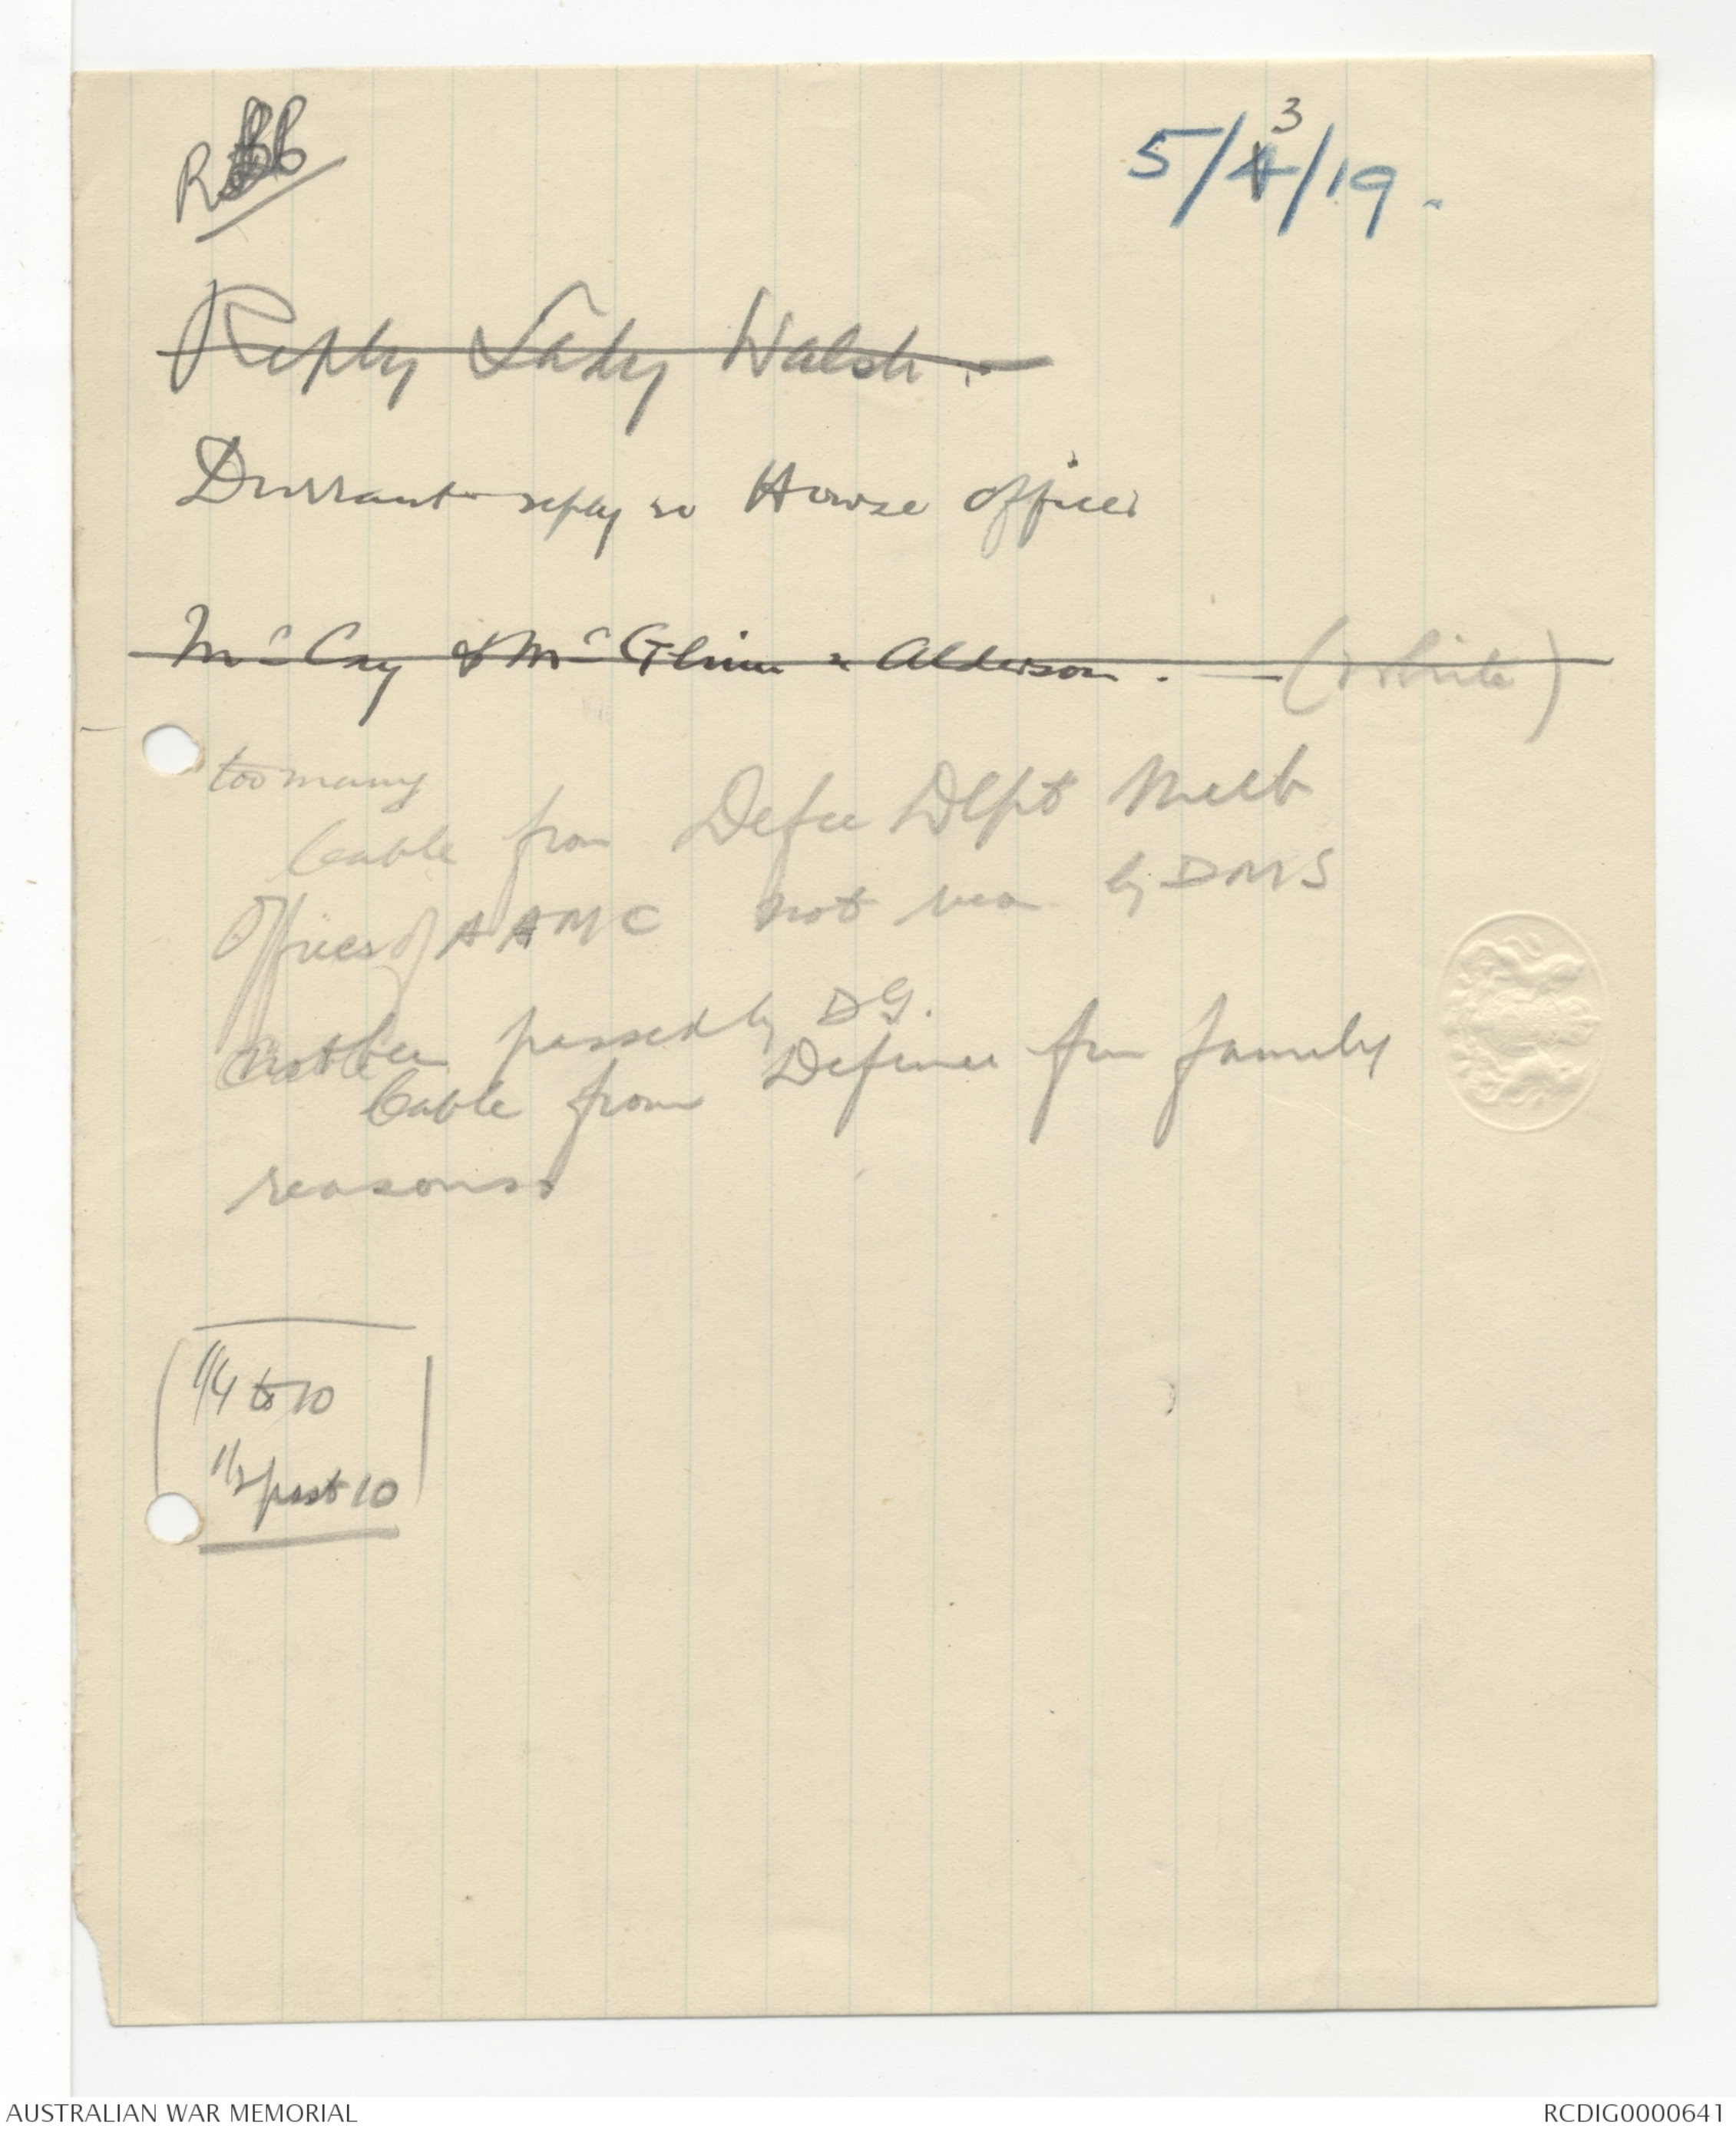 3
5/4/19.
Reply Lady Walsh.
Durrant reply re Howse officer
McCay & McGlinn & Alderson. — (White)
too many
Cable from Defce Dept Melb
Offices of AAMC not by DMS
passed by DG.
Cable from Defence for family
reasons
1/4 to 10
1/2 past 10
AUSTRALIAN WAR MEMORIAL
RCDIG0000641